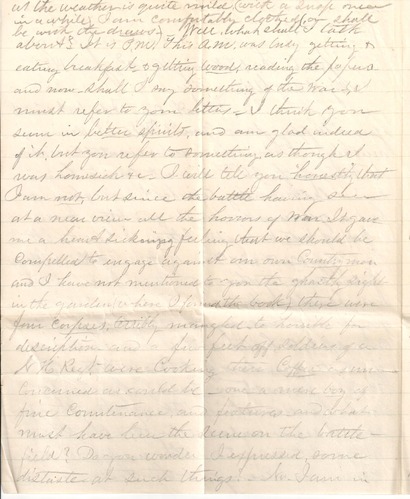 as the weather is quite mild (with a drop now
in a while) I am comfortably clothed (or shall
be with the drawers). Well, what shall I talk
about? It is P.M. This A.M. was busy getting &
eating breakfast & getting wood, reading the papers
and now shall I say something of the War &c
must refer to your letter I think you
seem in better spirits, and am glad indeed
of it, but you refer to something as though I
was homesick &c. I will tell you honestly that
I am not, but since the battle having seen
at a near view all the horrors of War It gave
me a heart sickening feeling that we should be
compelled to engage against our own Countrymen
and I have not mentioned to you the ghastly sight
in the garden where I found the book, there were
four corpses, terribly mangled to horrible for
description and a few feet off soldiers of a
N.H. Regt were Cooking their Coffee as
concerned as could be one a mere boy of
fine Countenance, and features and what
must have been the scene on the battle-
field? Do you wonder I expressed some
distaste at such things. I am in